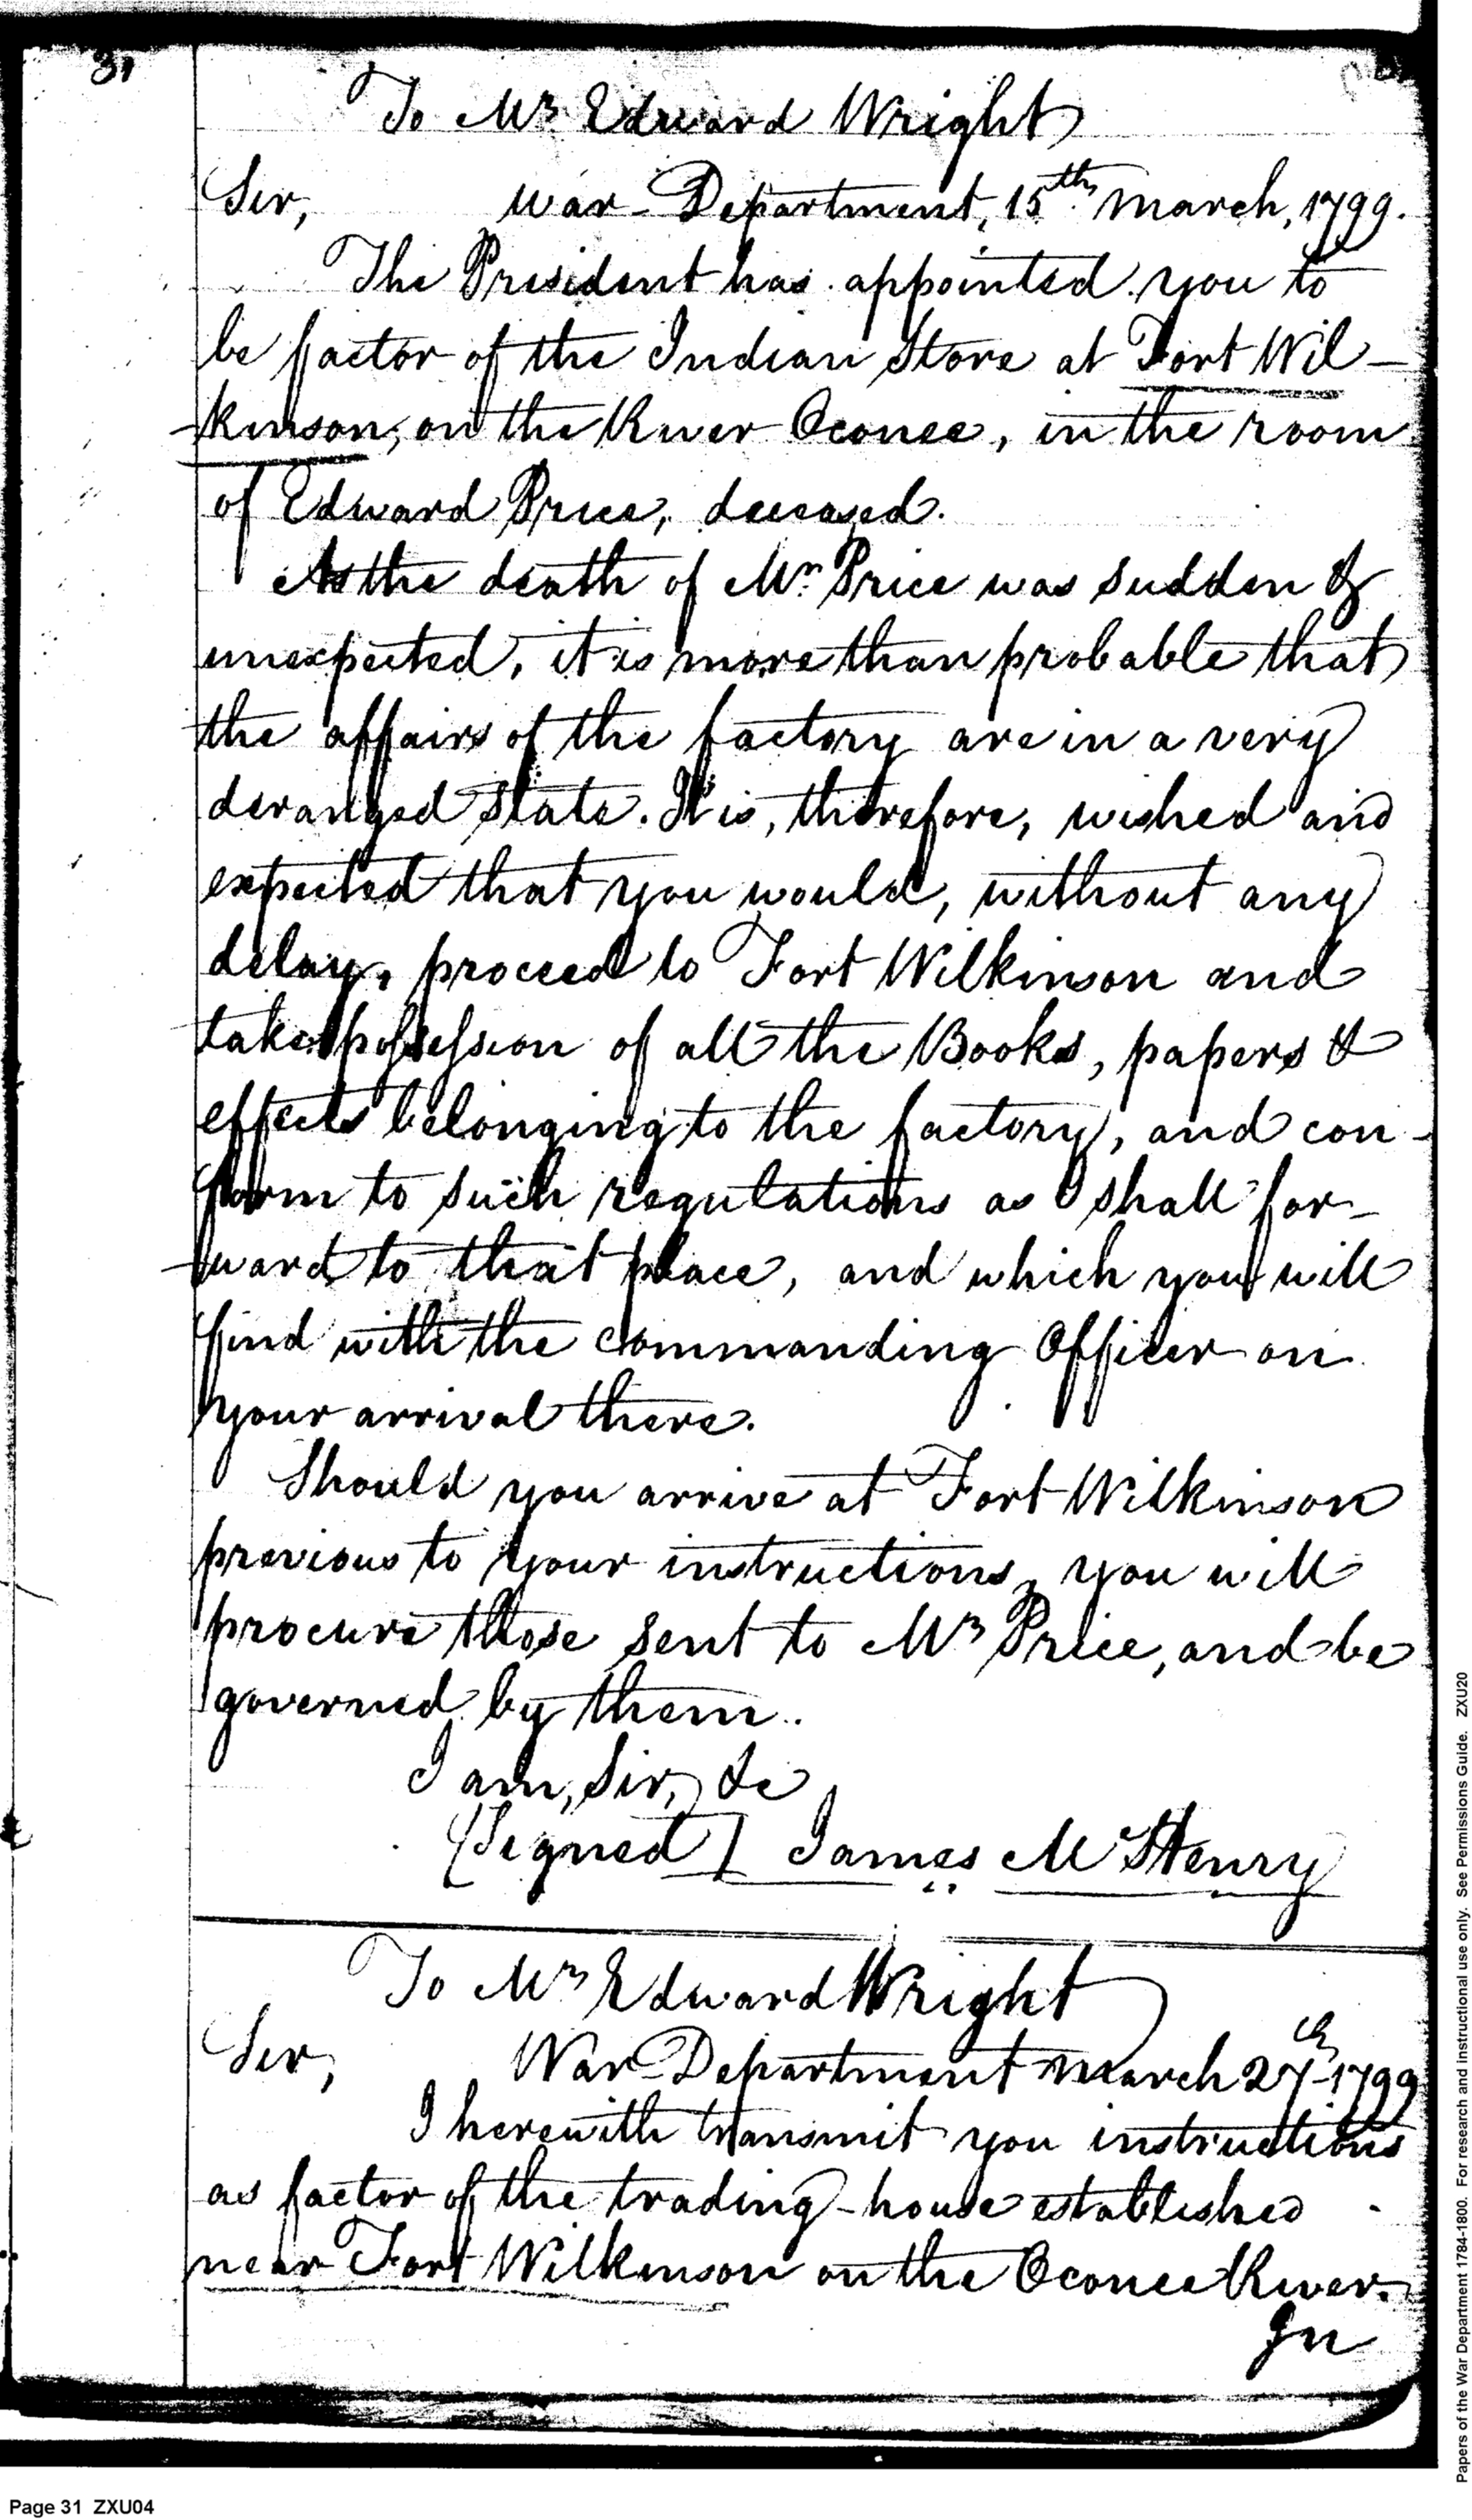 31
To Mr Edward Wright
Sir,
War-Department, 15th March, 1799.
The President has appointed you to
be factor of the Indian Store at Fort Wil-
kinson, on the River Oconee, in the room
of Edward Price, deceased.
As the death of Mr. Price was sudden &
unexpected, it is more than probable that
the affairs of the factory are in a very
deranged state. It is, therefore, wished and
expected that you would, without any
delay, proceed to Fort Wilkinson and
take possession of all the Books, papers &
effects belonging to the factory, and con-
form to such regulations as I shall for-
ward to that place, and which you will
find with the commanding Officer on
your arrival there.
Should you arrive at Fort Wilkinson
previous to your instructions, you will
procure those sent to Mr Price, and be
governed by them.
I am, Sir, &c
[Signed] James McHenry
To Mr Edward Wright
Sir,
War-Department March 27th 1799
I herewith transmit you instructions
as factor of the trading-house established
near Fort Wilkinson on the Oconee River.
In
Page 31 ZXU04
Papers of the War Department 1784-1800. For research and instructional use only. See Permissions Guide. ZXU20